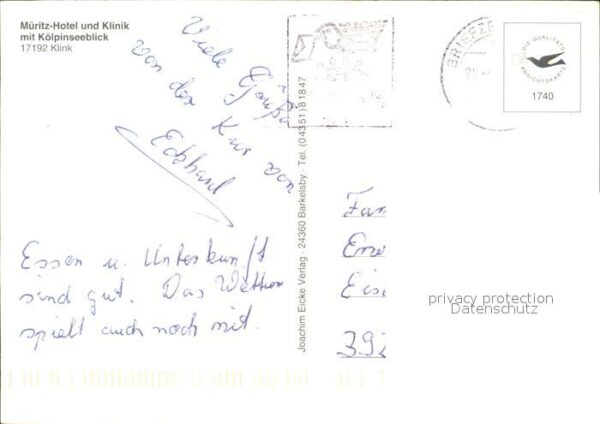 Müritz-Hotel und Klinik
mit Kölpinseeblick
17192 Klink
Viele Grüße
von der Kur von
Eckhard
Essen u. Unterkunft
sind gut. Das Wetter
spielt auch noch mit.
Joachim Eicke Verlag · 24360 Barkelsby · Tel. (04351) 81847
BRIEFZE
DIE QUALITÄTS
ANSICHTSKARTE
1740
Fam
Eise
392
privacy protection
Datenschutz